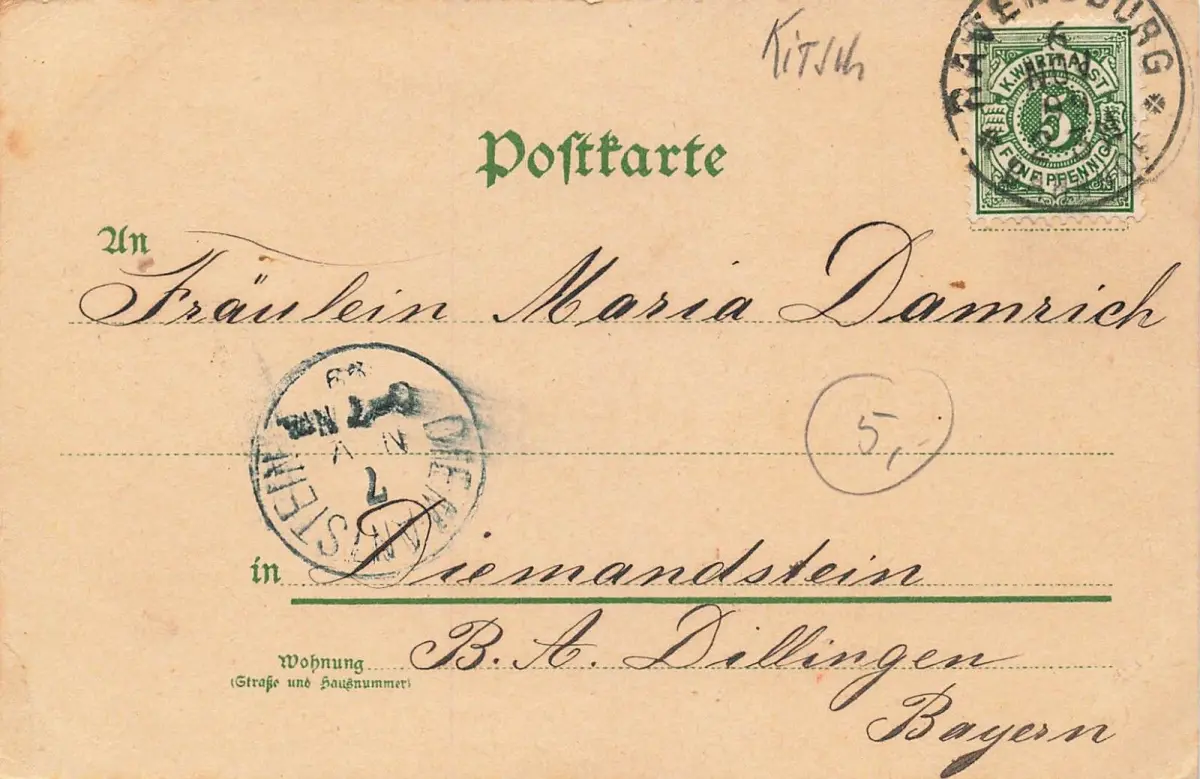 Kitsch
RAVENSBURG
6 NOV
K. WÜRTT. POST
5
FÜNF PFENNIG
Postkarte
An
Fräulein Maria Damrich
DIEMANTSTEIN
7
NOV
98
5,-
in Diemandstein
B. A. Dillingen
Wohnung
(Straße und Hausnummer)
Bayern